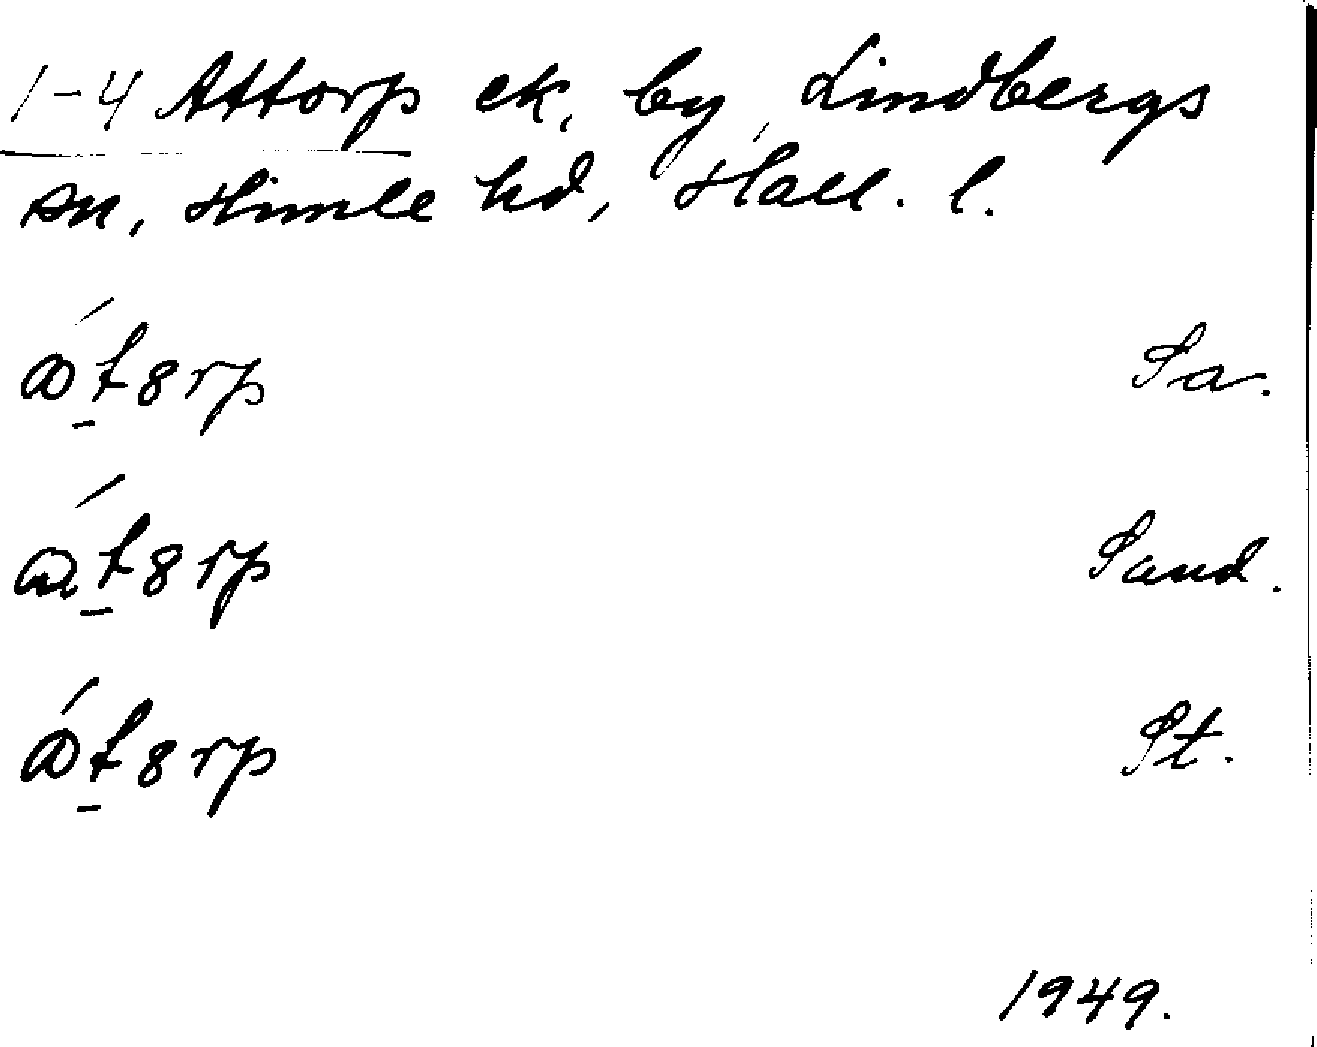 1-4 Attorp ek, by, Lindbergs
sn, Himle hd, Hall. l.
át8rp Sa.
át8rp Sand.
át8rp St.
1949.